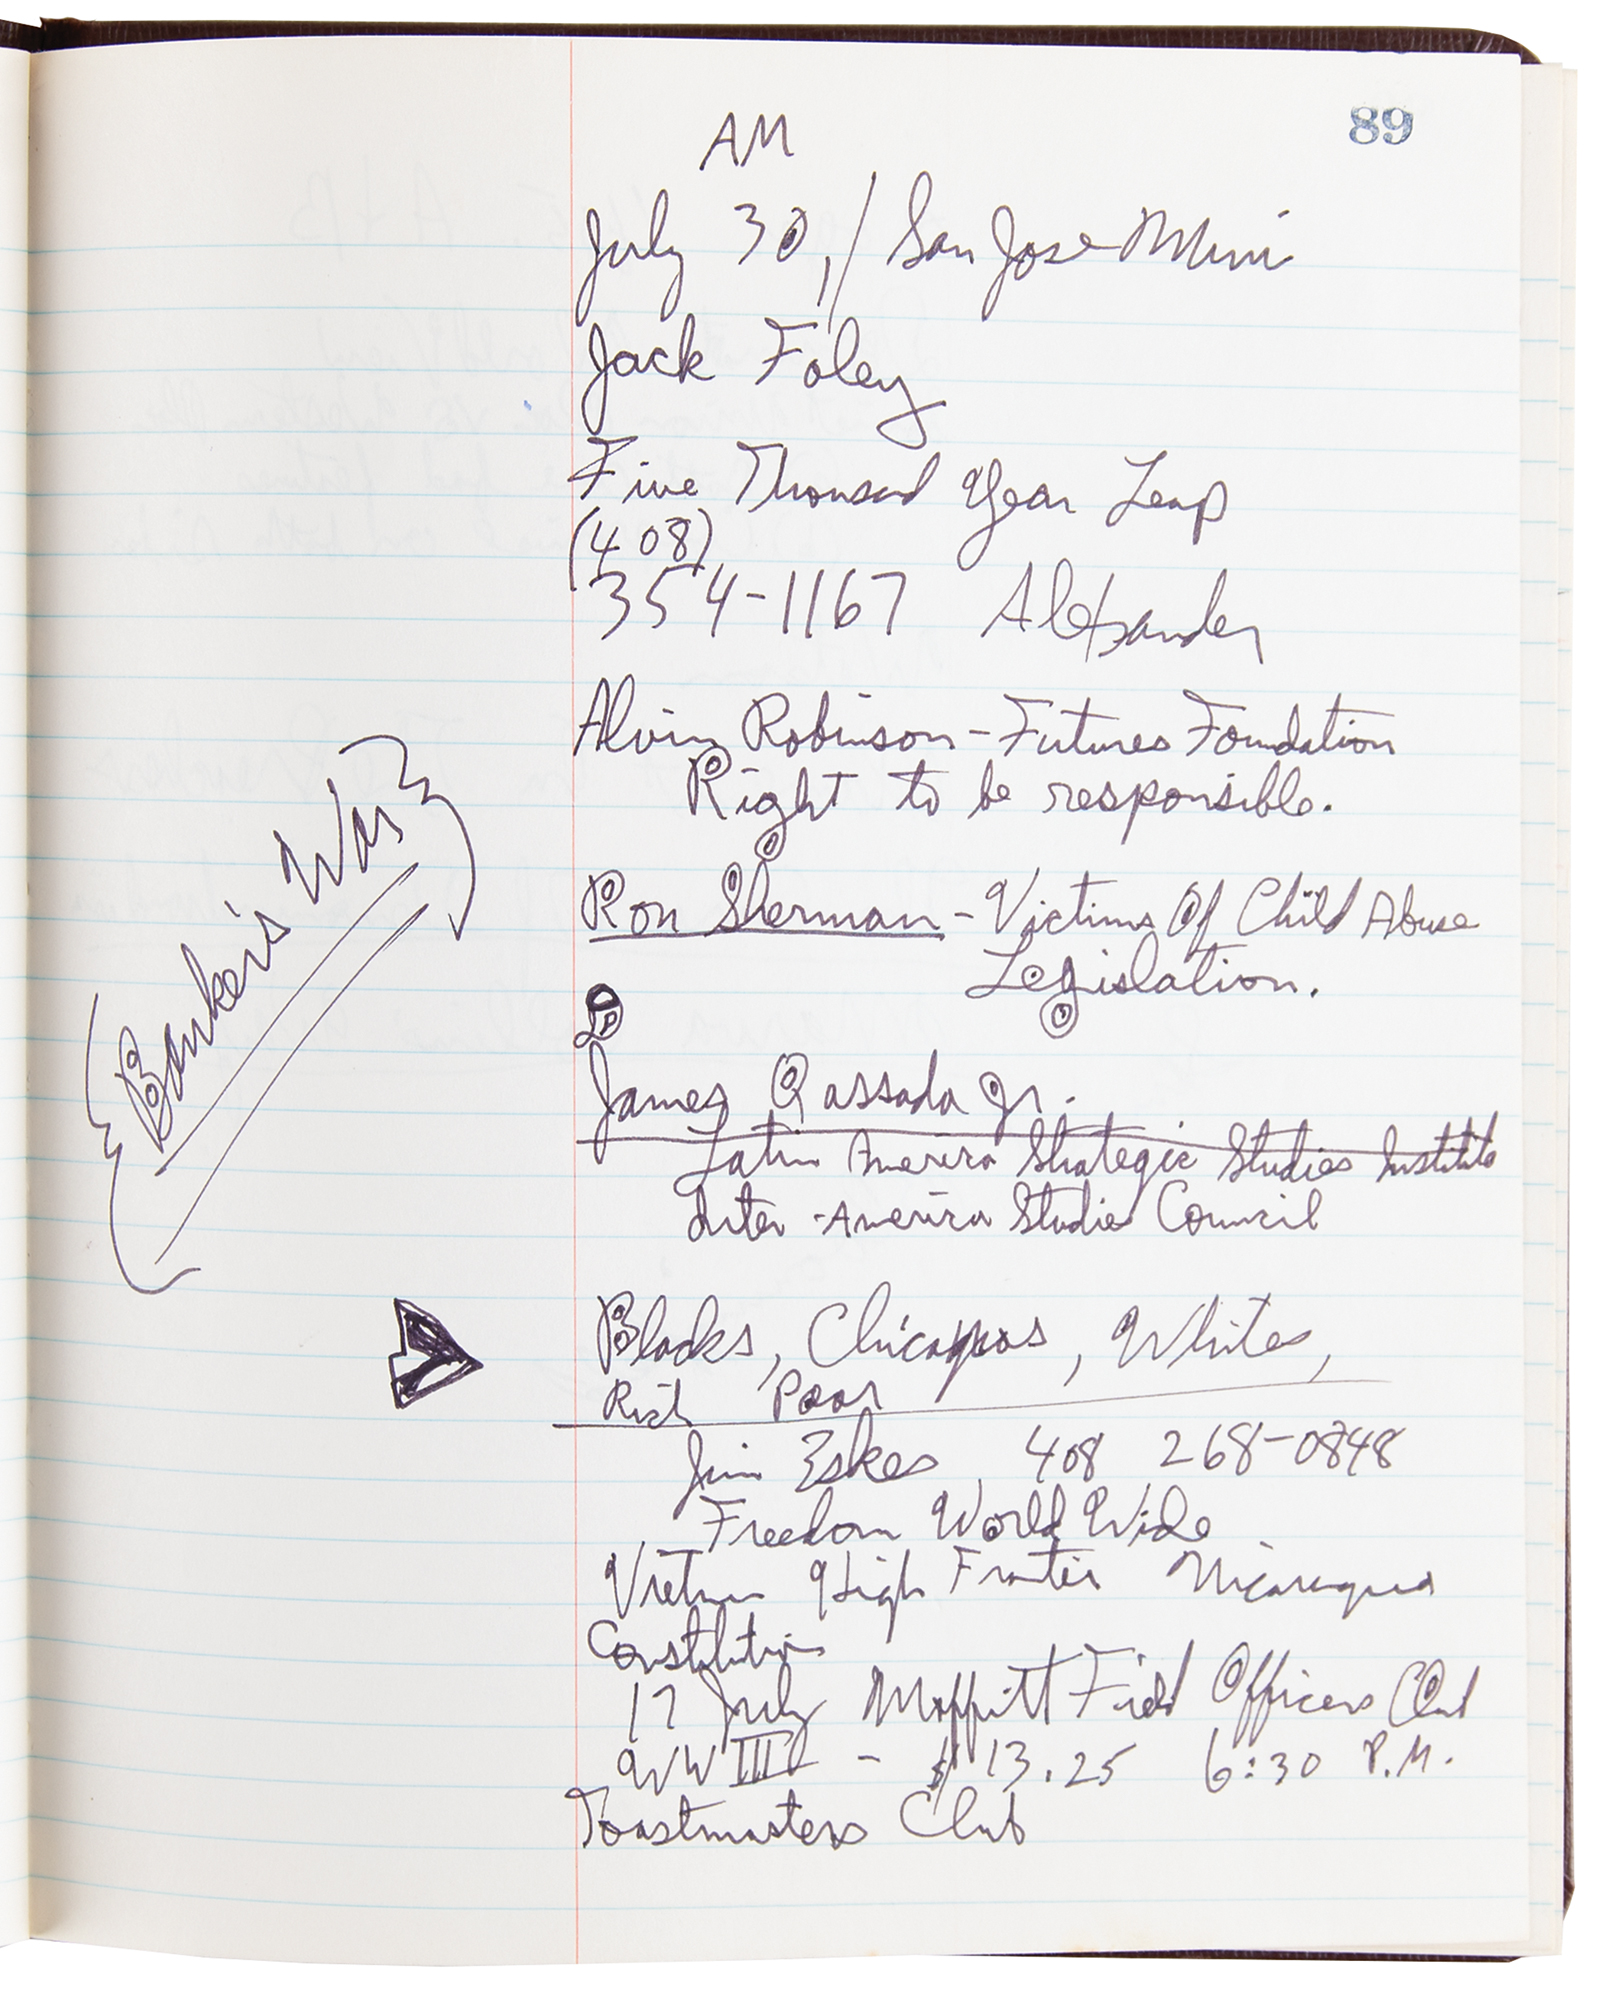 89
AM
July 30, / San Jose Mini
Jack Foley
Five Thousand Year Leap
(408)
354-1167 Alexander
Alvin Robinson - Futures Foundation
Right to be responsible.
{Banker's War}
Ron Sherman - Victims Of Child Abuse
Legislation.
James Qassada Jr.
Latin America Strategic Studies Institute
Inter-America Studies Council
Blacks, Chicanos, Whites,
Rich Poor
Jim Eskes, 408 268-0848
Freedom World Wide
Vietnam High Frontier Nicaragua
Constitution
17 July Moffitt Field Officers Club
WW III - $13.25 6:30 P.M.
Toastmasters Club